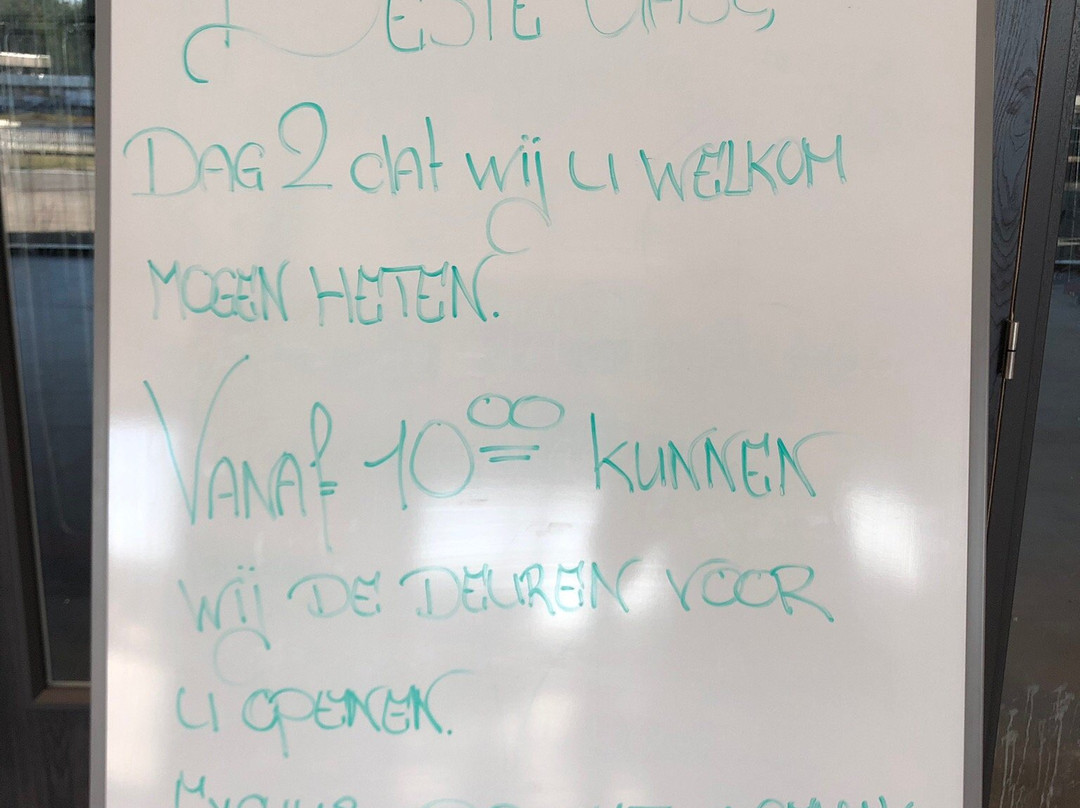 Beste Gast,
Dag 2 dat wij u welkom
mogen heten.
Vanaf 10 00 kunnen
wij de deuren voor
u openen.